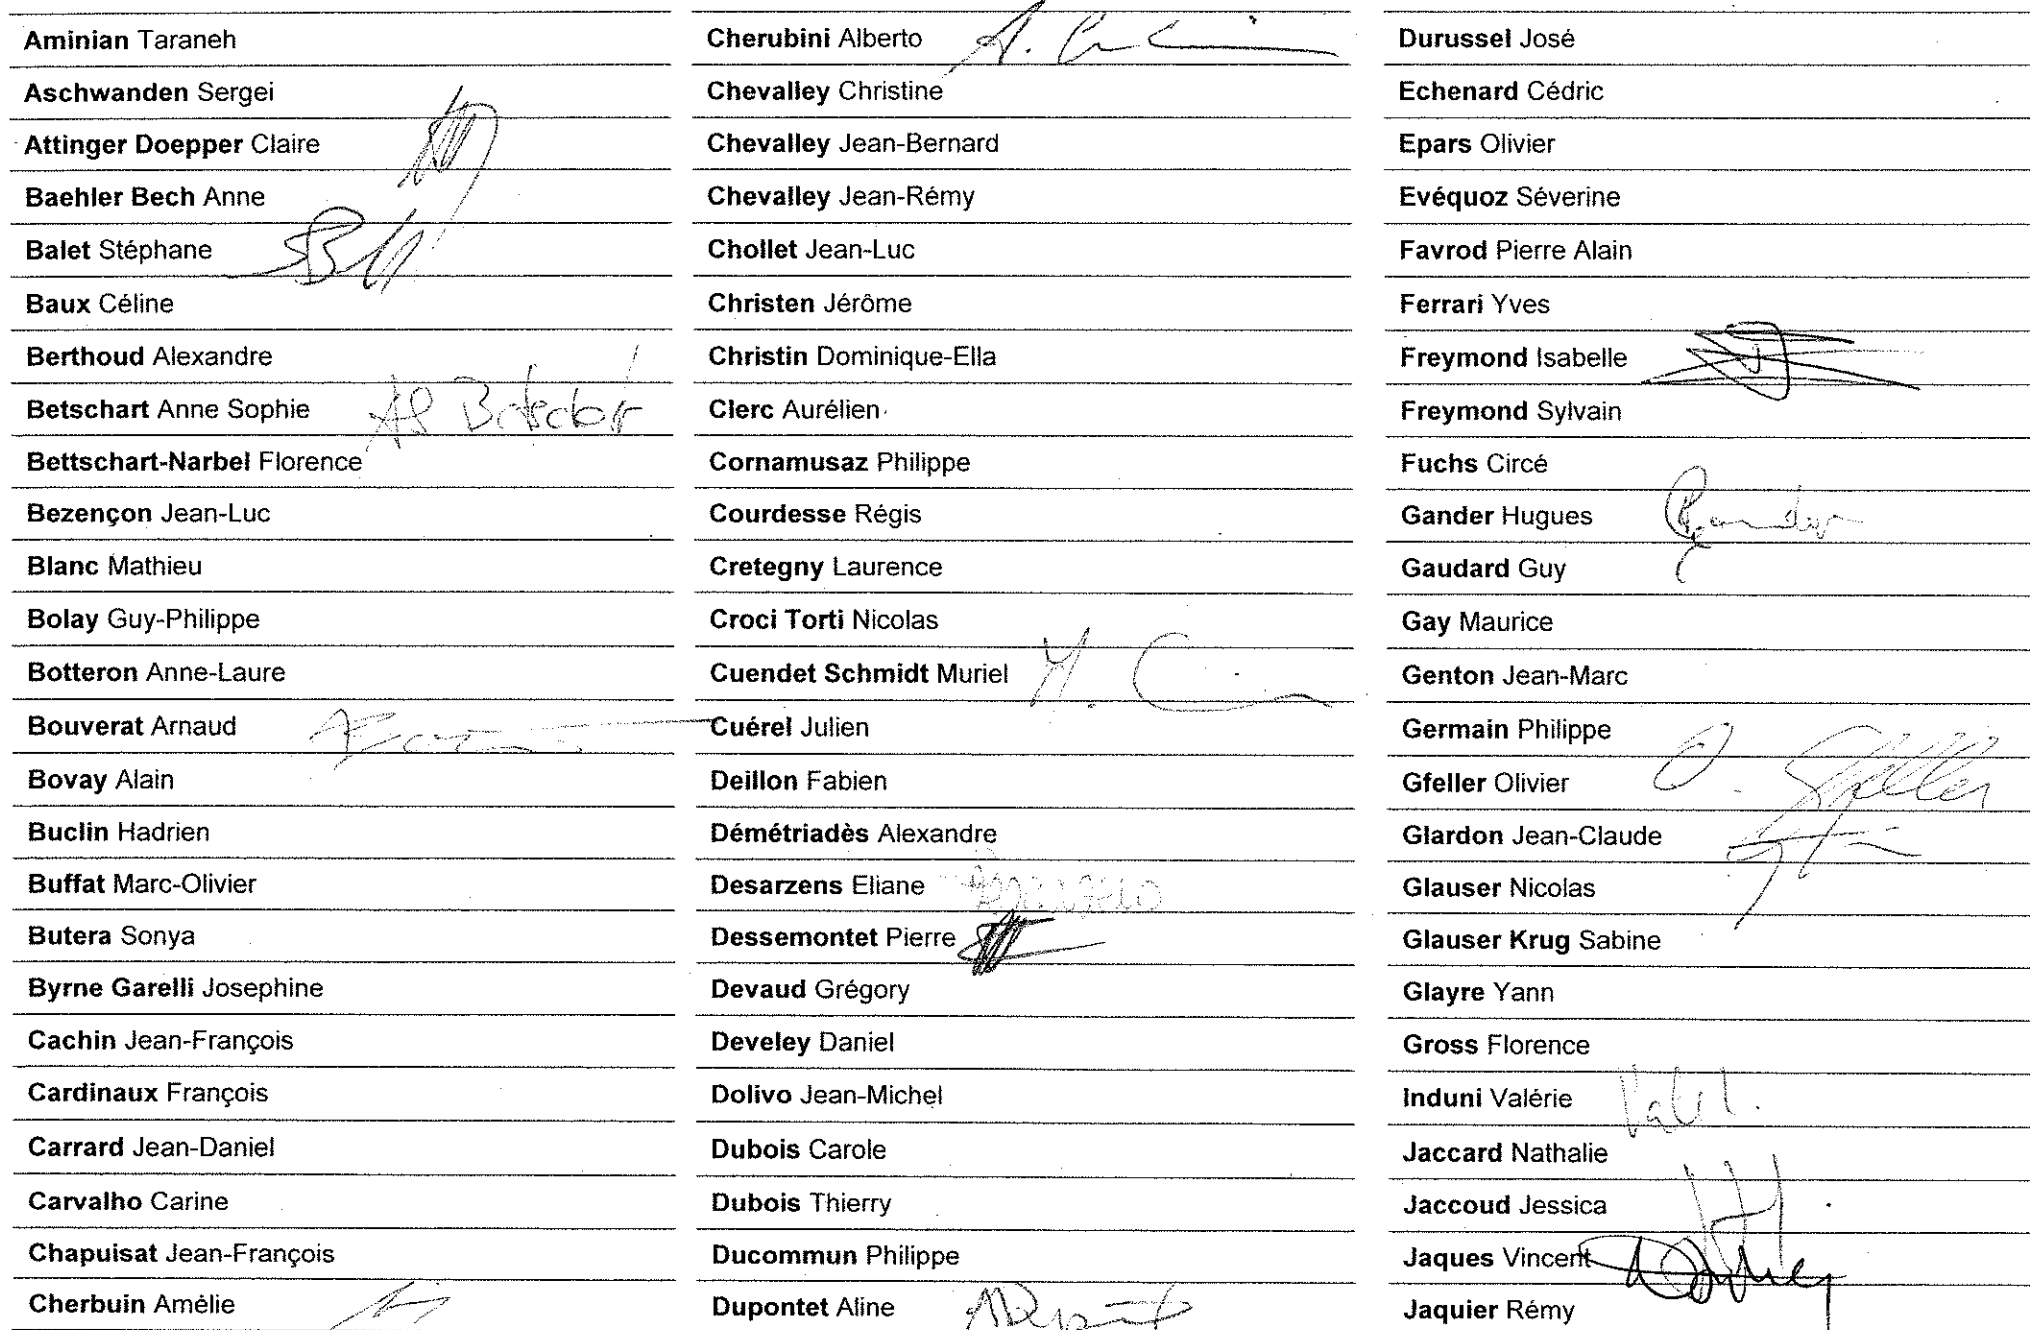 Aminian Taraneh
Aschwanden Sergei
Attinger Doepper Claire
Baehler Bech Anne
Balet Stéphane
Baux Céline
Berthoud Alexandre
Betschart Anne Sophie
Bettschart-Narbel Florence
Bezençon Jean-Luc
Blanc Mathieu
Bolay Guy-Philippe
Botteron Anne-Laure
Bouverat Arnaud
Bovay Alain
Buclin Hadrien
Buffat Marc-Olivier
Butera Sonya
Byrne Garelli Josephine
Cachin Jean-François
Cardinaux François
Carrard Jean-Daniel
Carvalho Carine
Chapuisat Jean-François
Cherbuin Amélie
Cherubini Alberto
Chevalley Christine
Chevalley Jean-Bernard
Chevalley Jean-Rémy
Chollet Jean-Luc
Christen Jérôme
Christin Dominique-Ella
Clerc Aurélien
Cornamusaz Philippe
Courdesse Régis
Cretegny Laurence
Croci Torti Nicolas
Cuendet Schmidt Muriel
Cuérel Julien
Deillon Fabien
Démétriadès Alexandre
Desarzens Eliane
Dessemontet Pierre
Devaud Grégory
Develey Daniel
Dolivo Jean-Michel
Dubois Carole
Dubois Thierry
Ducommun Philippe
Dupontet Aline
Durussel José
Echenard Cédric
Epars Olivier
Evéquoz Séverine
Favrod Pierre Alain
Ferrari Yves
Freymond Isabelle
Freymond Sylvain
Fuchs Circé
Gander Hugues
Gaudard Guy
Gay Maurice
Genton Jean-Marc
Germain Philippe
Gfeller Olivier
O. Gfeller
Glardon Jean-Claude
Glauser Nicolas
Glauser Krug Sabine
Glayre Yann
Gross Florence
Induni Valérie
Jaccard Nathalie
Jaccoud Jessica
Jaques Vincent
Jaquier Rémy